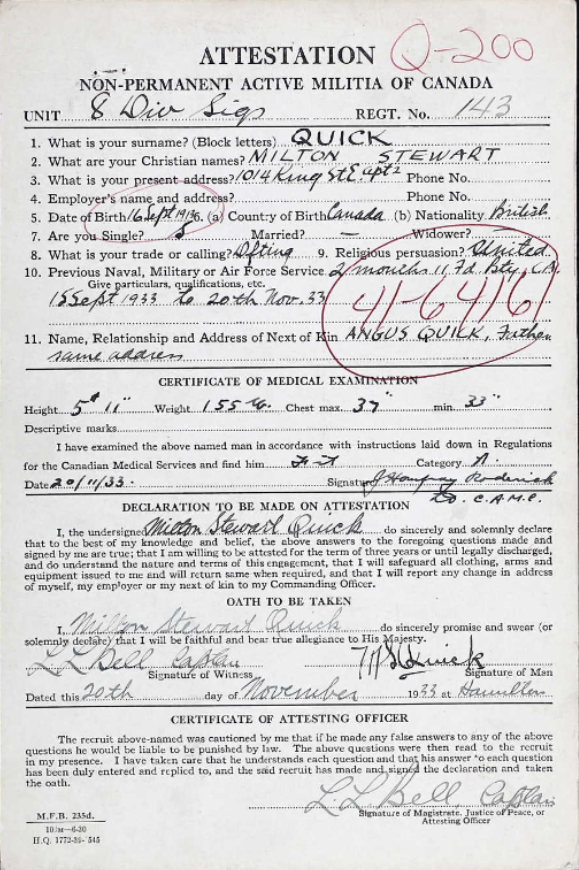 ATTESTATION Q-200
NON-PERMANENT ACTIVE MILITIA OF CANADA
UNIT 8 Div Sigs REGT. No. 143
1. What is your surname? (Block letters) QUICK
2. What are your Christian names? MILTON STEWART
3. What is your present address? 1014 King St E. apt 2 Phone No.
4. Employer's name and address? Phone No.
5. Date of Birth 16 Sept 1916. (a) Country of Birth Canada (b) Nationality British
7. Are you Single? S Married? — Widower?
8. What is your trade or calling? 9. Religious persuasion? United
10. Previous Naval, Military or Air Force Service 2 months 11 Fd. Bty,
Give particulars, qualifications, etc.
15 Sept 1933 to 20th Nov. 33
41-6416
11. Name, Relationship and Address of Next of Kin ANGUS QUICK, Father
same address
CERTIFICATE OF MEDICAL EXAMINATION
Height 5' 11" Weight 155 lb. Chest max. 37" min. 33"
Descriptive marks
I have examined the above named man in accordance with instructions laid down in Regulations
for the Canadian Medical Services and find him Fit Category A.
Date 20/11/33. Signature
C.A.M.C.
DECLARATION TO BE MADE ON ATTESTATION
I, the undersigned Milton Stewart Quick do sincerely and solemnly declare
that to the best of my knowledge and belief, the above answers to the foregoing questions made and
signed by me are true; that I am willing to be attested for the term of three years or until legally discharged,
and do understand the nature and terms of this engagement, that I will safeguard all clothing, arms and
equipment issued to me and will return same when required, and that I will report any change in address
of myself, my employer or my next of kin to my Commanding Officer.
OATH TO BE TAKEN
I, Milton Stewart Quick do sincerely promise and swear (or
solemnly declare) that I will be faithful and bear true allegiance to His Majesty.
L L Bell Captain M S Quick
Signature of Witness Signature of Man
Dated this 20th day of November 1933 at Hamilton
CERTIFICATE OF ATTESTING OFFICER
The recruit above-named was cautioned by me that if he made any false answers to any of the above
questions he would be liable to be punished by law. The above questions were then read to the recruit
in my presence. I have taken care that he understands each question and that his answer to each question
has been duly entered and replied to, and the said recruit has made and signed the declaration and taken
the oath.
L L Bell, Captain
Signature of Magistrate, Justice of Peace, or
Attesting Officer
M.F.B. 235d.
10/M—6-30
H.Q. 1772-39-545